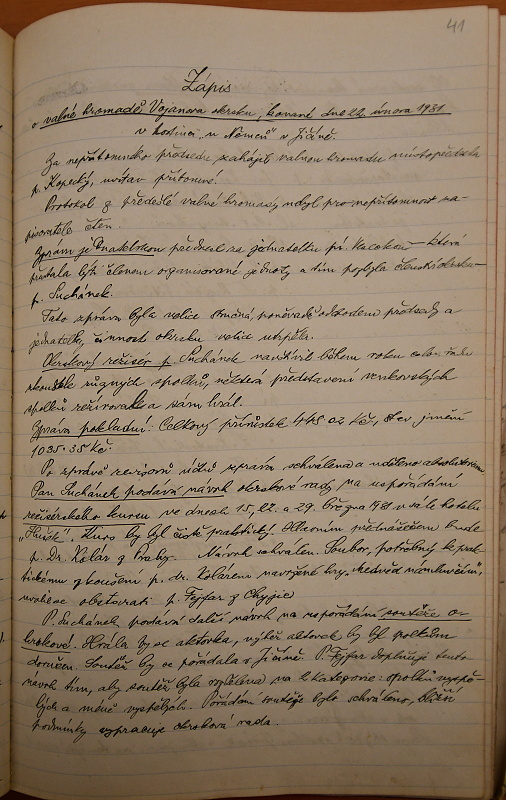 41
Zápis
o valné hromadě Vojanova okrsku, konané dne 22. února 1931
v hostinci „u Němců" v Jičíně.
Za nepřítomného předsedu zahájil valnou hromadu místopředseda
p. Kopecký, uvítav přítomné.
Protokol z předešlé valné hromady nebyl pro nepřítomnost za-
pisovatele čten.
Zprávu jednatelskou předčesl za jednatelku která
přestala býti členem organisované jednoty a tím pozbyla
p. Suchánek.
Tato zpráva byla velice stručná, poněvadž odchodem předsedy a
jednatelky, činnost okrsku velice utrpěla.
Okrskový režisér p. Suchánek navštívil během roku celou řadu
zkoušek různých spolků, některá představení venkovských
spolků režíroval a sám hrál.
Zpráva pokladní: Celkový přírůstek 445.02 Kč, stav jmění
1035.35 Kč.
Po zprávě revisorů účtů zpráva schválena a uděleno absolutorium
Pan Suchánek podává návrh okrskové rady na uspořádání
režisérského kursu ve dnech 15, 22. a 29. března 1931 v sále hotelu
Kurs by byl čistě praktický. Hlavním přednášečem bude
p. Dr. Kolár z Prahy. Návrh schválen. Soubor, potřebný k prak-
tickému zkoušení p. dr. Kolárem navržené hry „Medvěd námluvčím",
uvolil se obstarati p. Fejfar z
P. Suchánek podává další návrh na uspořádání soutěže o-
krskové. Hrála by se aktovka, výběr aktovek by byl spolkům
doručen. Soutěž by se pořádala v Jičíně. P. Fejfar doplňuje tento
návrh tím, aby soutěž byla rozdělena na 2 kategorie: spolků vyspě-
lých a méně vyspělých. Pořádání soutěže bylo schváleno, bližší
podmínky vypracuje okrsková rada.